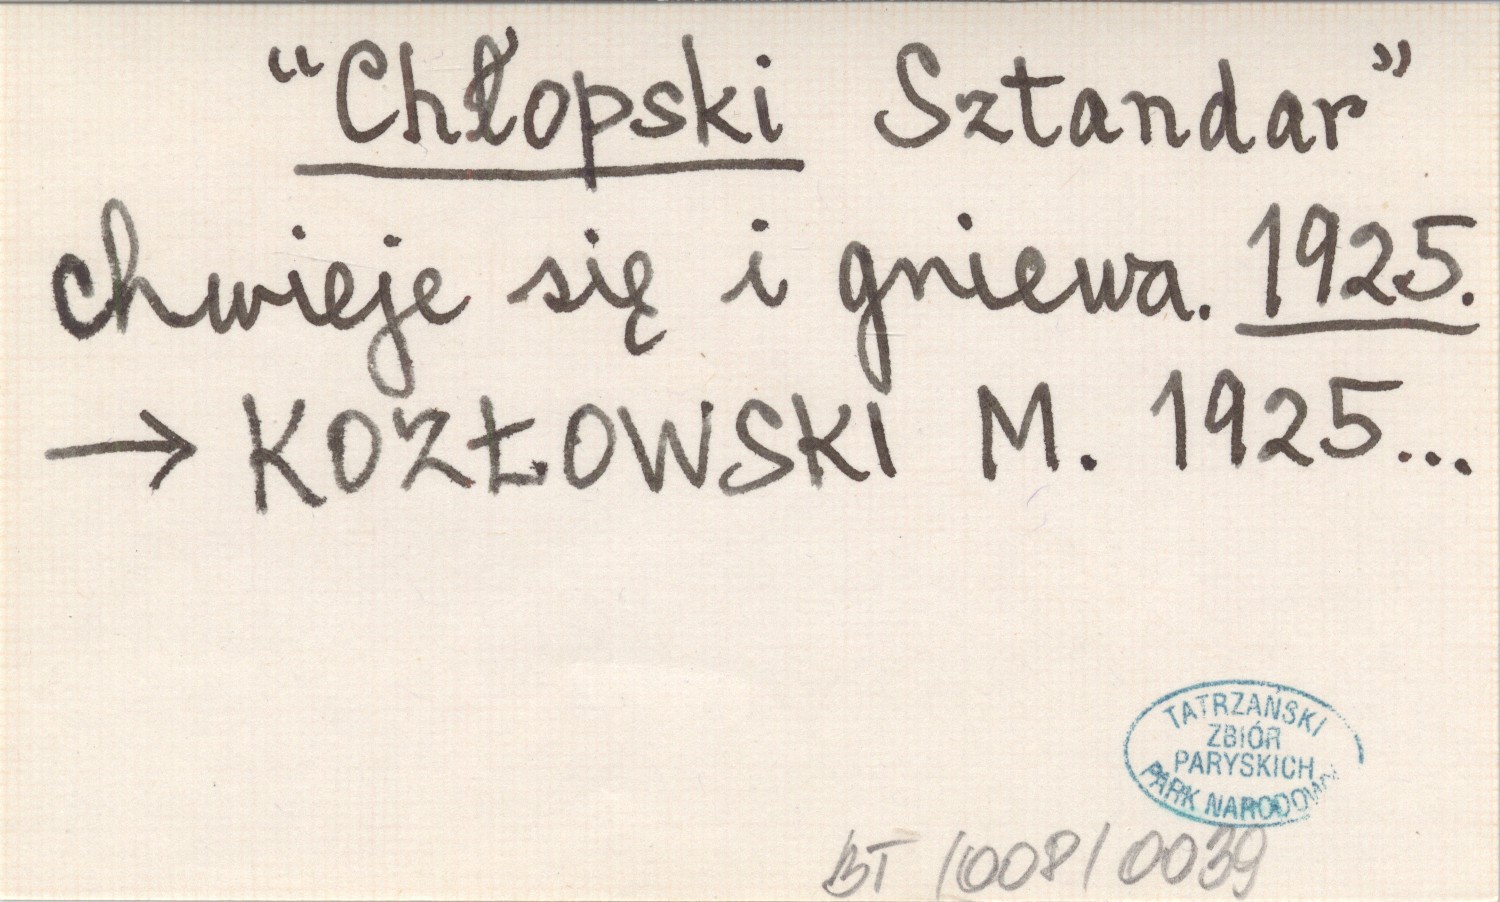 “Chłopski Sztandar”
chwieje się i gniewa. 1925.
→ KOZŁOWSKI M. 1925...
TATRZAŃSKI
ZBIÓR
PARYSKICH
PARK NARODOWY
BT /008/0039